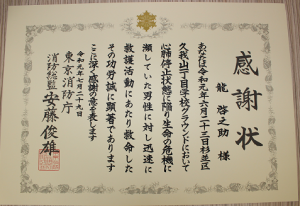 感謝状
龍 啓之助 様
あなたは令和元年六月二十三日杉並区
久我山丁目学校グラウンドにおいて
心肺停止状態に陥り生命の危機に
瀕していた男性に対し迅速に
救護活動にあたり救命した
その功労誠に顕著であります
ここに深く感謝の意を表します
令和元年七月二十九日
東京消防庁
消防総監 安藤俊雄